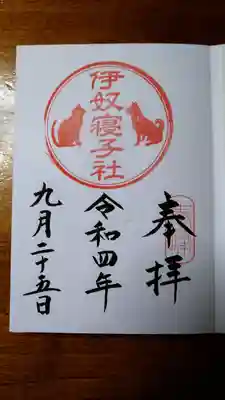 奉拝
令和四年
九月二十五日
伊奴寝子社